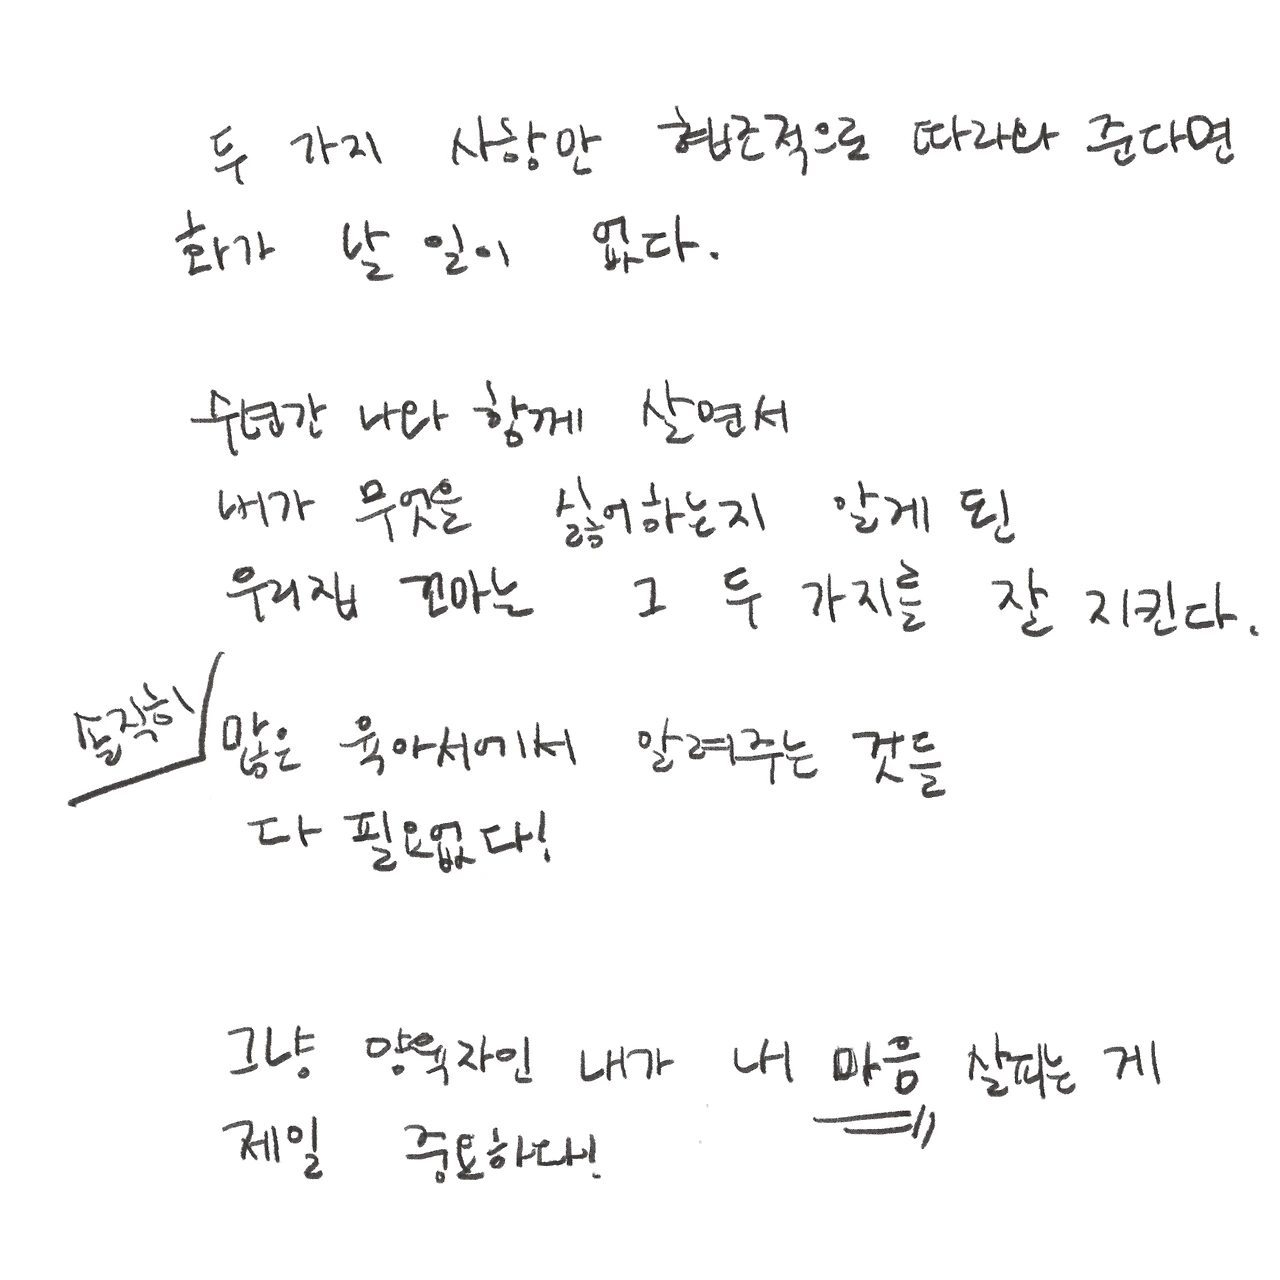 두 가지 사항만 협조적으로 따라와 준다면
화가 날 일이 없다.
수년간 나와 함께 살면서
내가 무엇을 싫어하는지 알게 된
우리집 꼬마는 그 두 가지를 잘 지킨다.
솔직히
많은 육아서에서 알려주는 것들
다 필요없다!
그냥 양육자인 내가 내 마음 살피는 게
제일 중요하다!